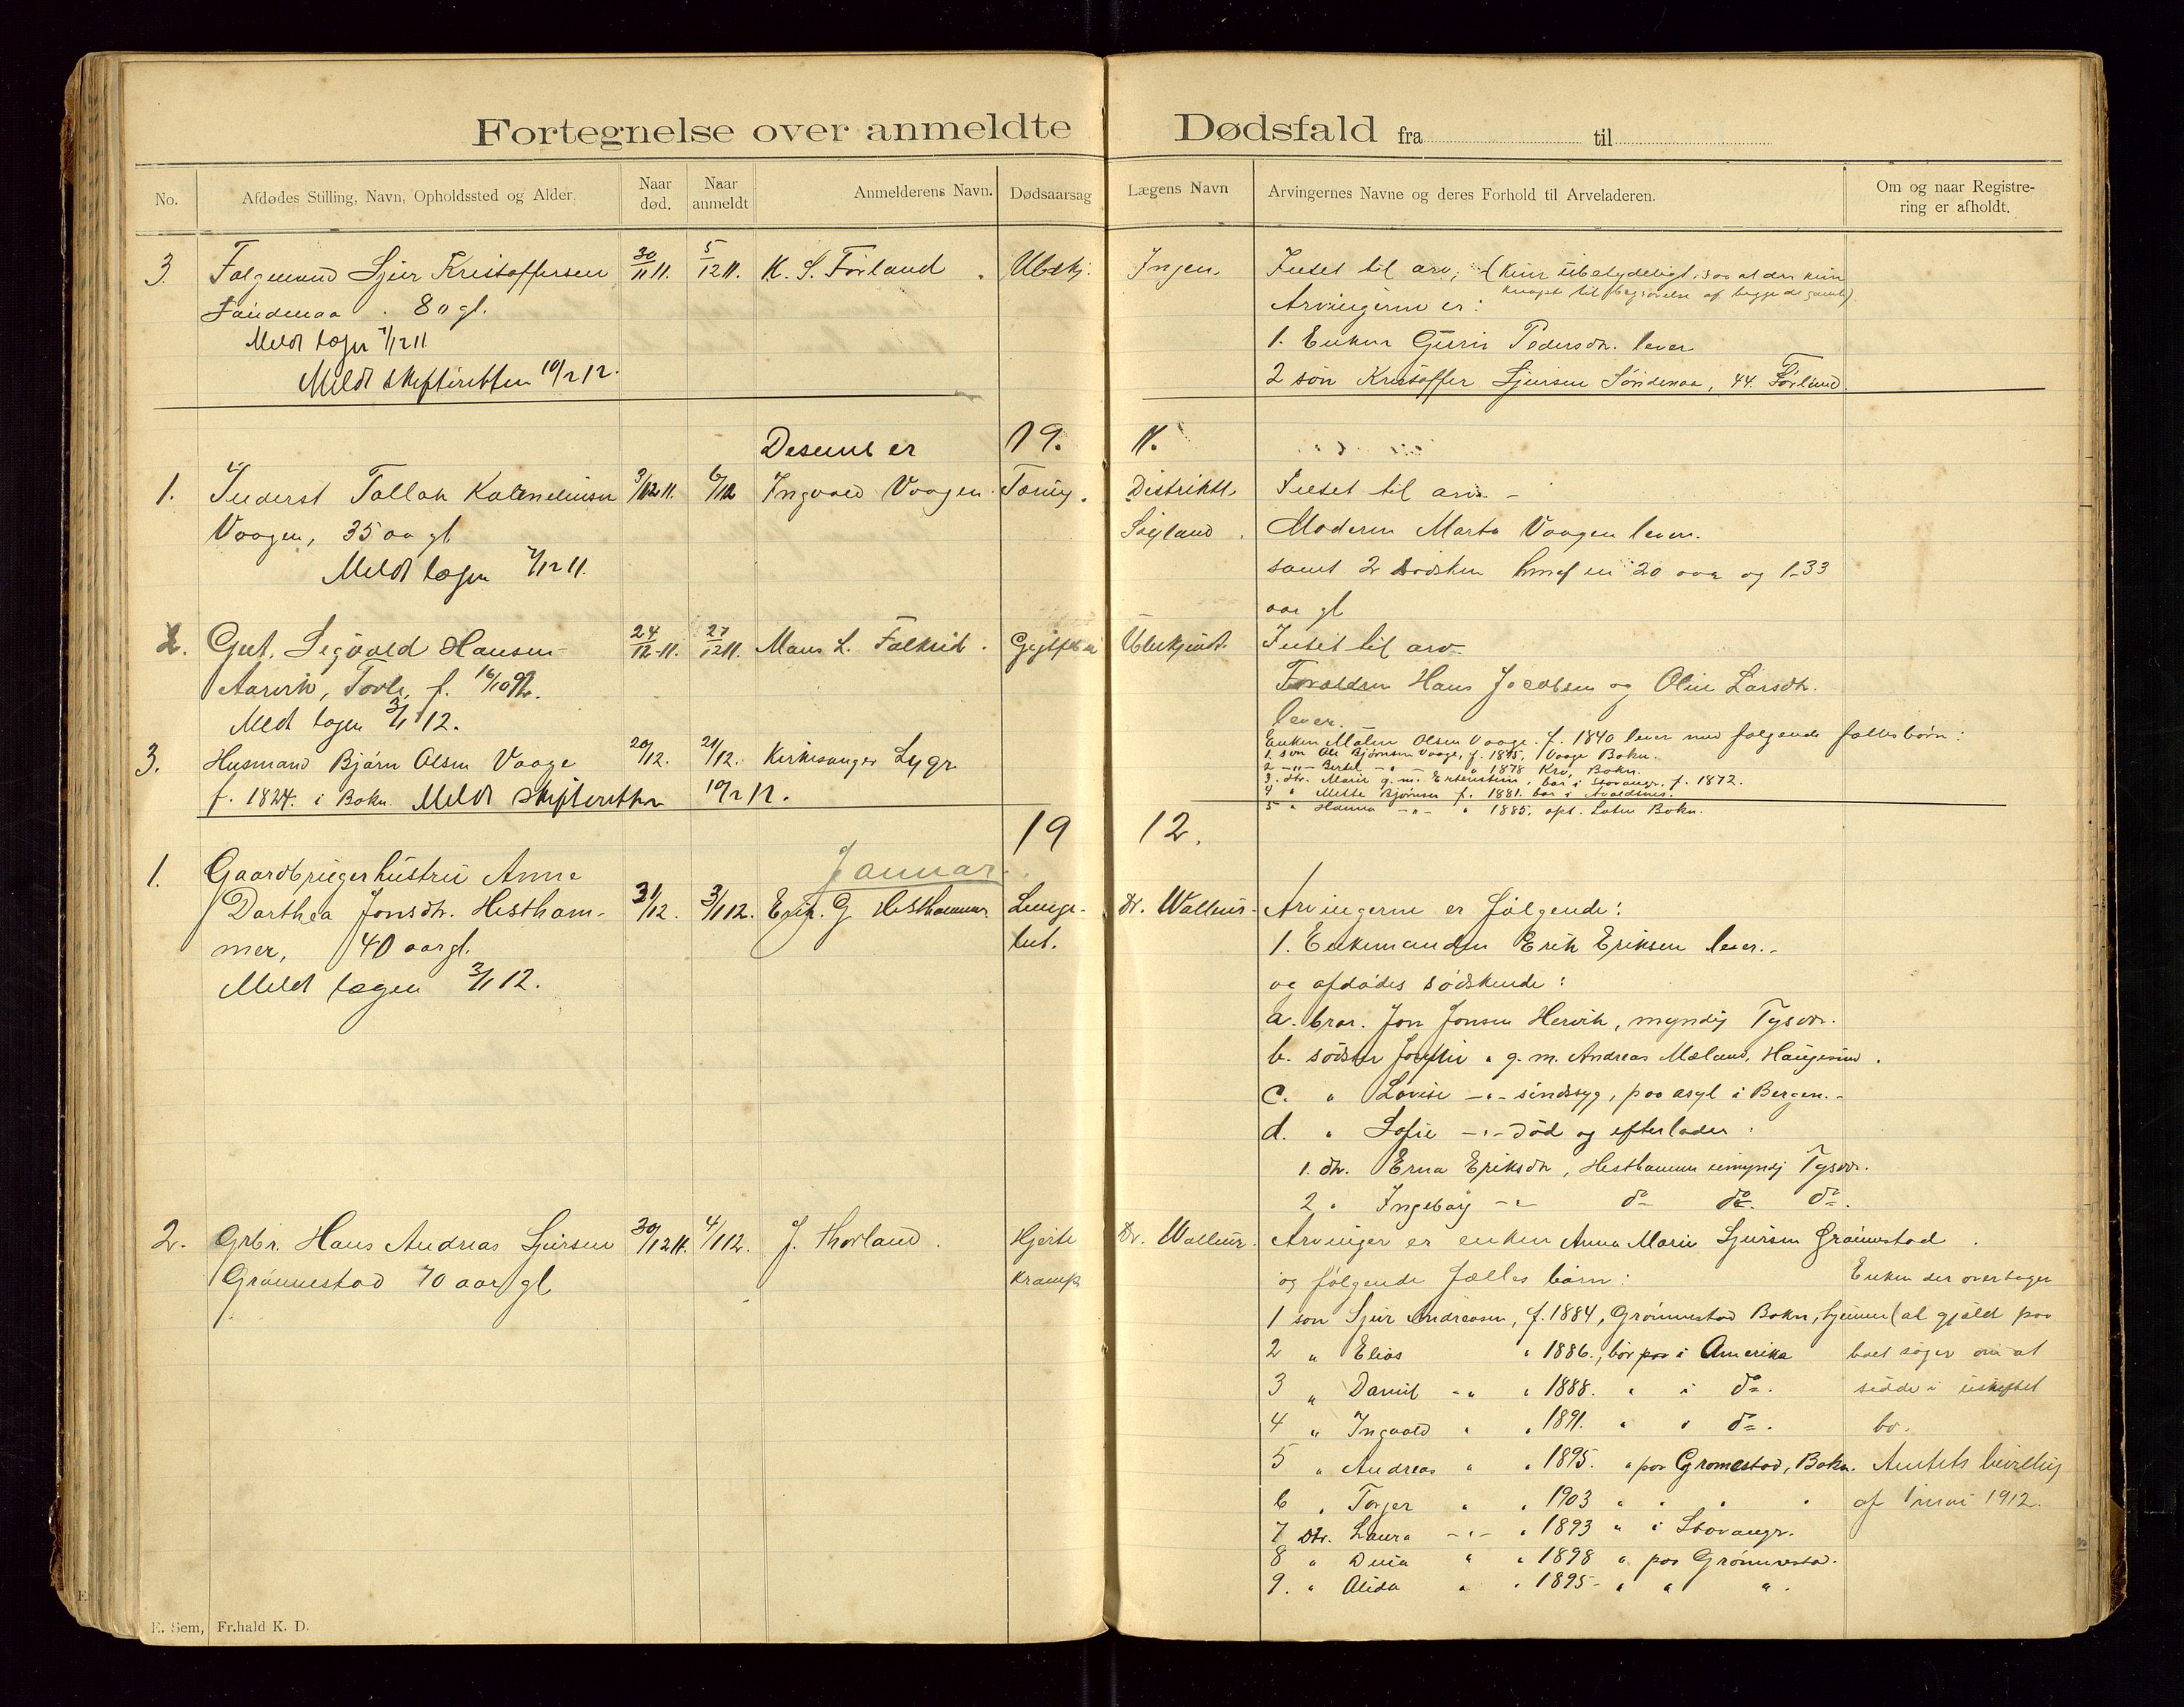 Fortegnelse over anmeldte Dødsfald fra til
No. Afdødes Stilling, Navn, Opholdssted og Alder. Naar død. Naar anmeldt Anmelderens Navn. Dødsaarsag Lægens Navn Arvingernes Navne og deres Forhold til Arveladeren. Om og naar Registrering er afholdt.
3. Sjur Kristoffersen 30/11 11. 5/12 11. K. S. Førland. Ubekj. Ingen. Intet til arv, (kun ubetydeligt, saa at der kun
80 gl. knapt til begravelse af begge de gamle).
Arvingerne er:
Meldt lagen 7/12 11 1. Enken Guri Pedersdtr. lever
Meldt skifteretten 10/2 12. 2 søn Kristoffer Sjursen Søndenaa, 44. Førland.
Desember 19. 11.
1. Inderst Tollak 3/12 11. 6/12 Ingvald Vaagen. Tæring. Distriktsl. Intet til arv –
Vaagen, 35 aa gl. Moderen Marta Vaagen lever.
Meldt lægen 7/12 11. samt 2 sødsken hvoraf en 20 aar og 1–33
aar gl
2. Gut. Sigvald Hansen 24/12 11. 27/12 11. Mans L. Falkeid. Ubekjendt. Intet til arv.
Aarvik, f. 16/10 Forældren Hans Jacobsen og Oline Larsdtr.
Meldt lagen 3/1 12. lever.
3. Husmand Bjørn Olsen Vaage 20/12. 21/12. Kirkesanger Lygre Enken Malene Olsen Vaage. f. 1840 lever med følgende fælles børn:
f. 1824. i Bokn. Meldt Skifteretten 10/2 12. 1. søn Ole Bjørnsen Vaage, f. 1875, Vaage Bokn.
2 –"– Bertel – " – " 1878 Bokn.
3. dtr. Marie g. m. bor i Stavanger, f. 1872.
4 " Mette Bjørnsen f. 1881. bor i Avaldsnes.
5 " Hanna –"– " 1885. Bokn.
19 12.
Januar
1. Gaardbrugerhustru Anne
Dorthea Jonsdtr. Hestham- 31/12. 3/1 12. Erik. G Hesthammer Lunge- Dr. Wallem. Arvingerne er følgende:
mer, 40 aar gl. bet. 1. Enkemanden Erik Eriksen lever.
Meldt lægen 3/1 12. og afdødes sødskende:
a. bror. Jon Jonsen Hervik, myndig Tysvær.
b. sødster " g. m. Andreas Mæland, Haugesund.
c. " Lovise –"– sindssyg, paa asyl i Bergen.
d. " Sofie –"– død og efterlader:
1. dtr. Erna Eriksdtr, Hesthammer umyndig Tysvær.
2 " Ingeborg –"– do do. do.
2. Grbr. Hans Andreas Sjursen 30/12 11. 4/1 12. J. Thorland. Hjerte Dr. Wallem. Arvinger er enken Anna Marie Sjursen Grønnestad.
Grønnestad 70 aar gl krampe og følgende fælles børn: Enken der overtager
1 søn Sjur Andreasen, f. 1884, Grønnestad Bokn, hjemme (al gjæld paa
2 " Elias " 1886., bor i Amerika boet søger om at
3 " Daniel –" " 1888. " i do. sidde i uskiftet
4 " Ingvald " " 1891. " i do. bo.
5 " Andreas " " 1895. " paa Grønnestad, Bokn. Amtets bevilling
6 " Torger " " 1903 " " " " af 1 mai 1912.
7 Dtr. Laura –"– " 1893 " i Stavanger.
8 " Dina " " 1898 " paa Grønnestad.
9. " Alida " " 1895 – " " ".
E. Sem, Fr.hald K. D.